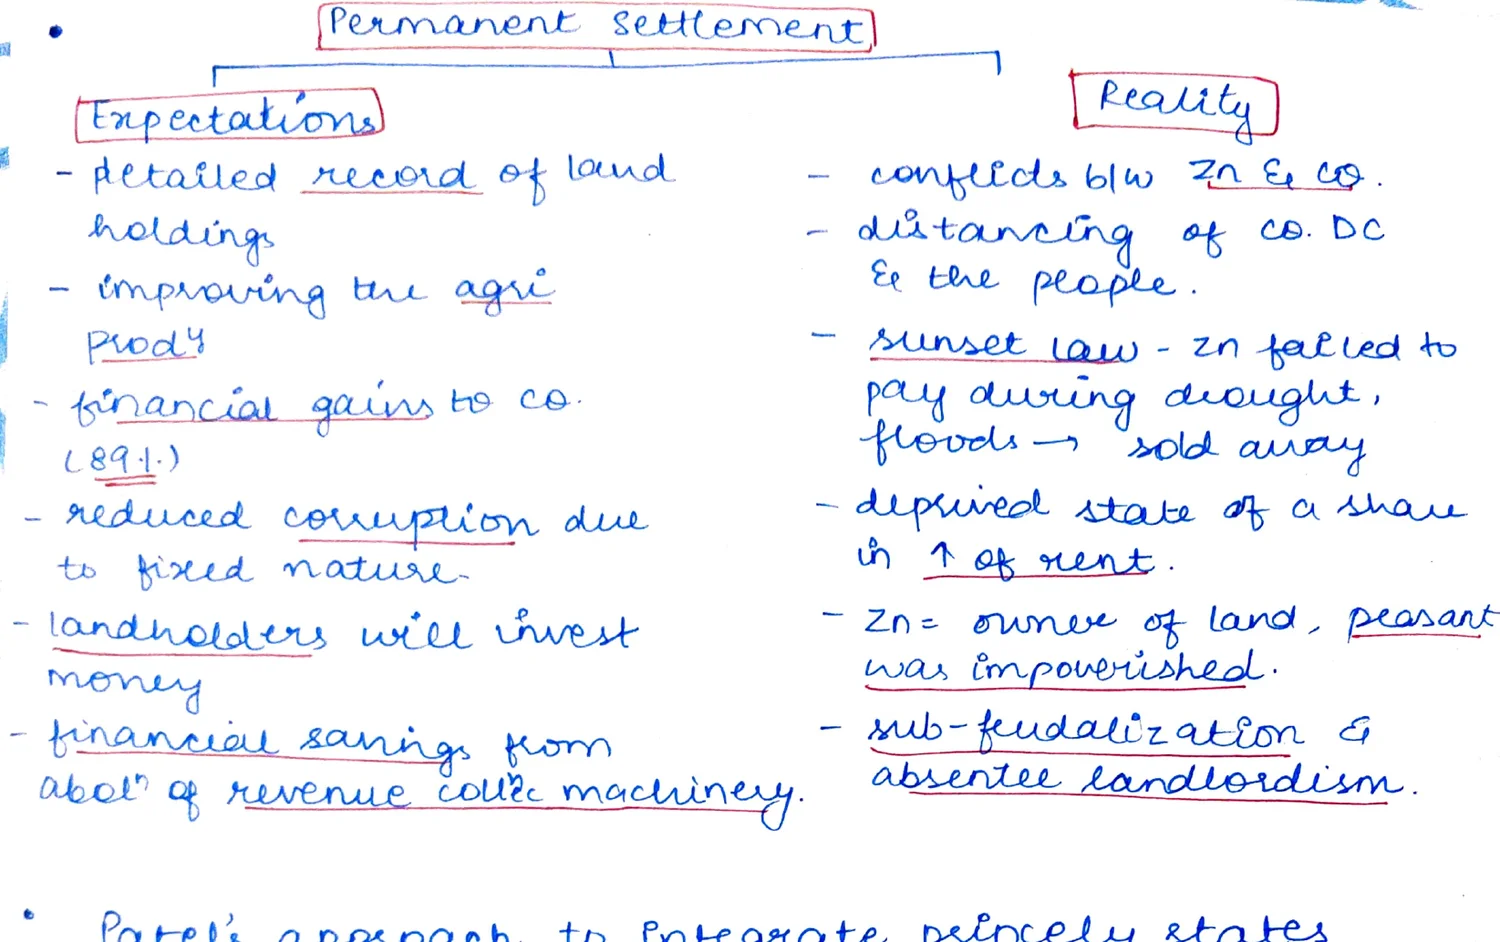 Permanent Settlement
Expectations
- Detailed record of land
holdings
- improving the agri
prody
- financial gains to co.
(89%)
- reduced corruption due
to fixed nature.
- landholders will invest
money
- financial savings from
aboln of revenue collnc machinery.
Reality
- conflicts b/w Zn & co.
- distancing of co. DC
& the people.
- sunset law - Zn failed to
pay during drought,
floods → sold away
- deprived state of a share
in ↑ of rent.
- Zn = owner of land, peasant
was impoverished.
- sub-feudalization &
absentee landlordism.
Patel's approach to integrate princely states